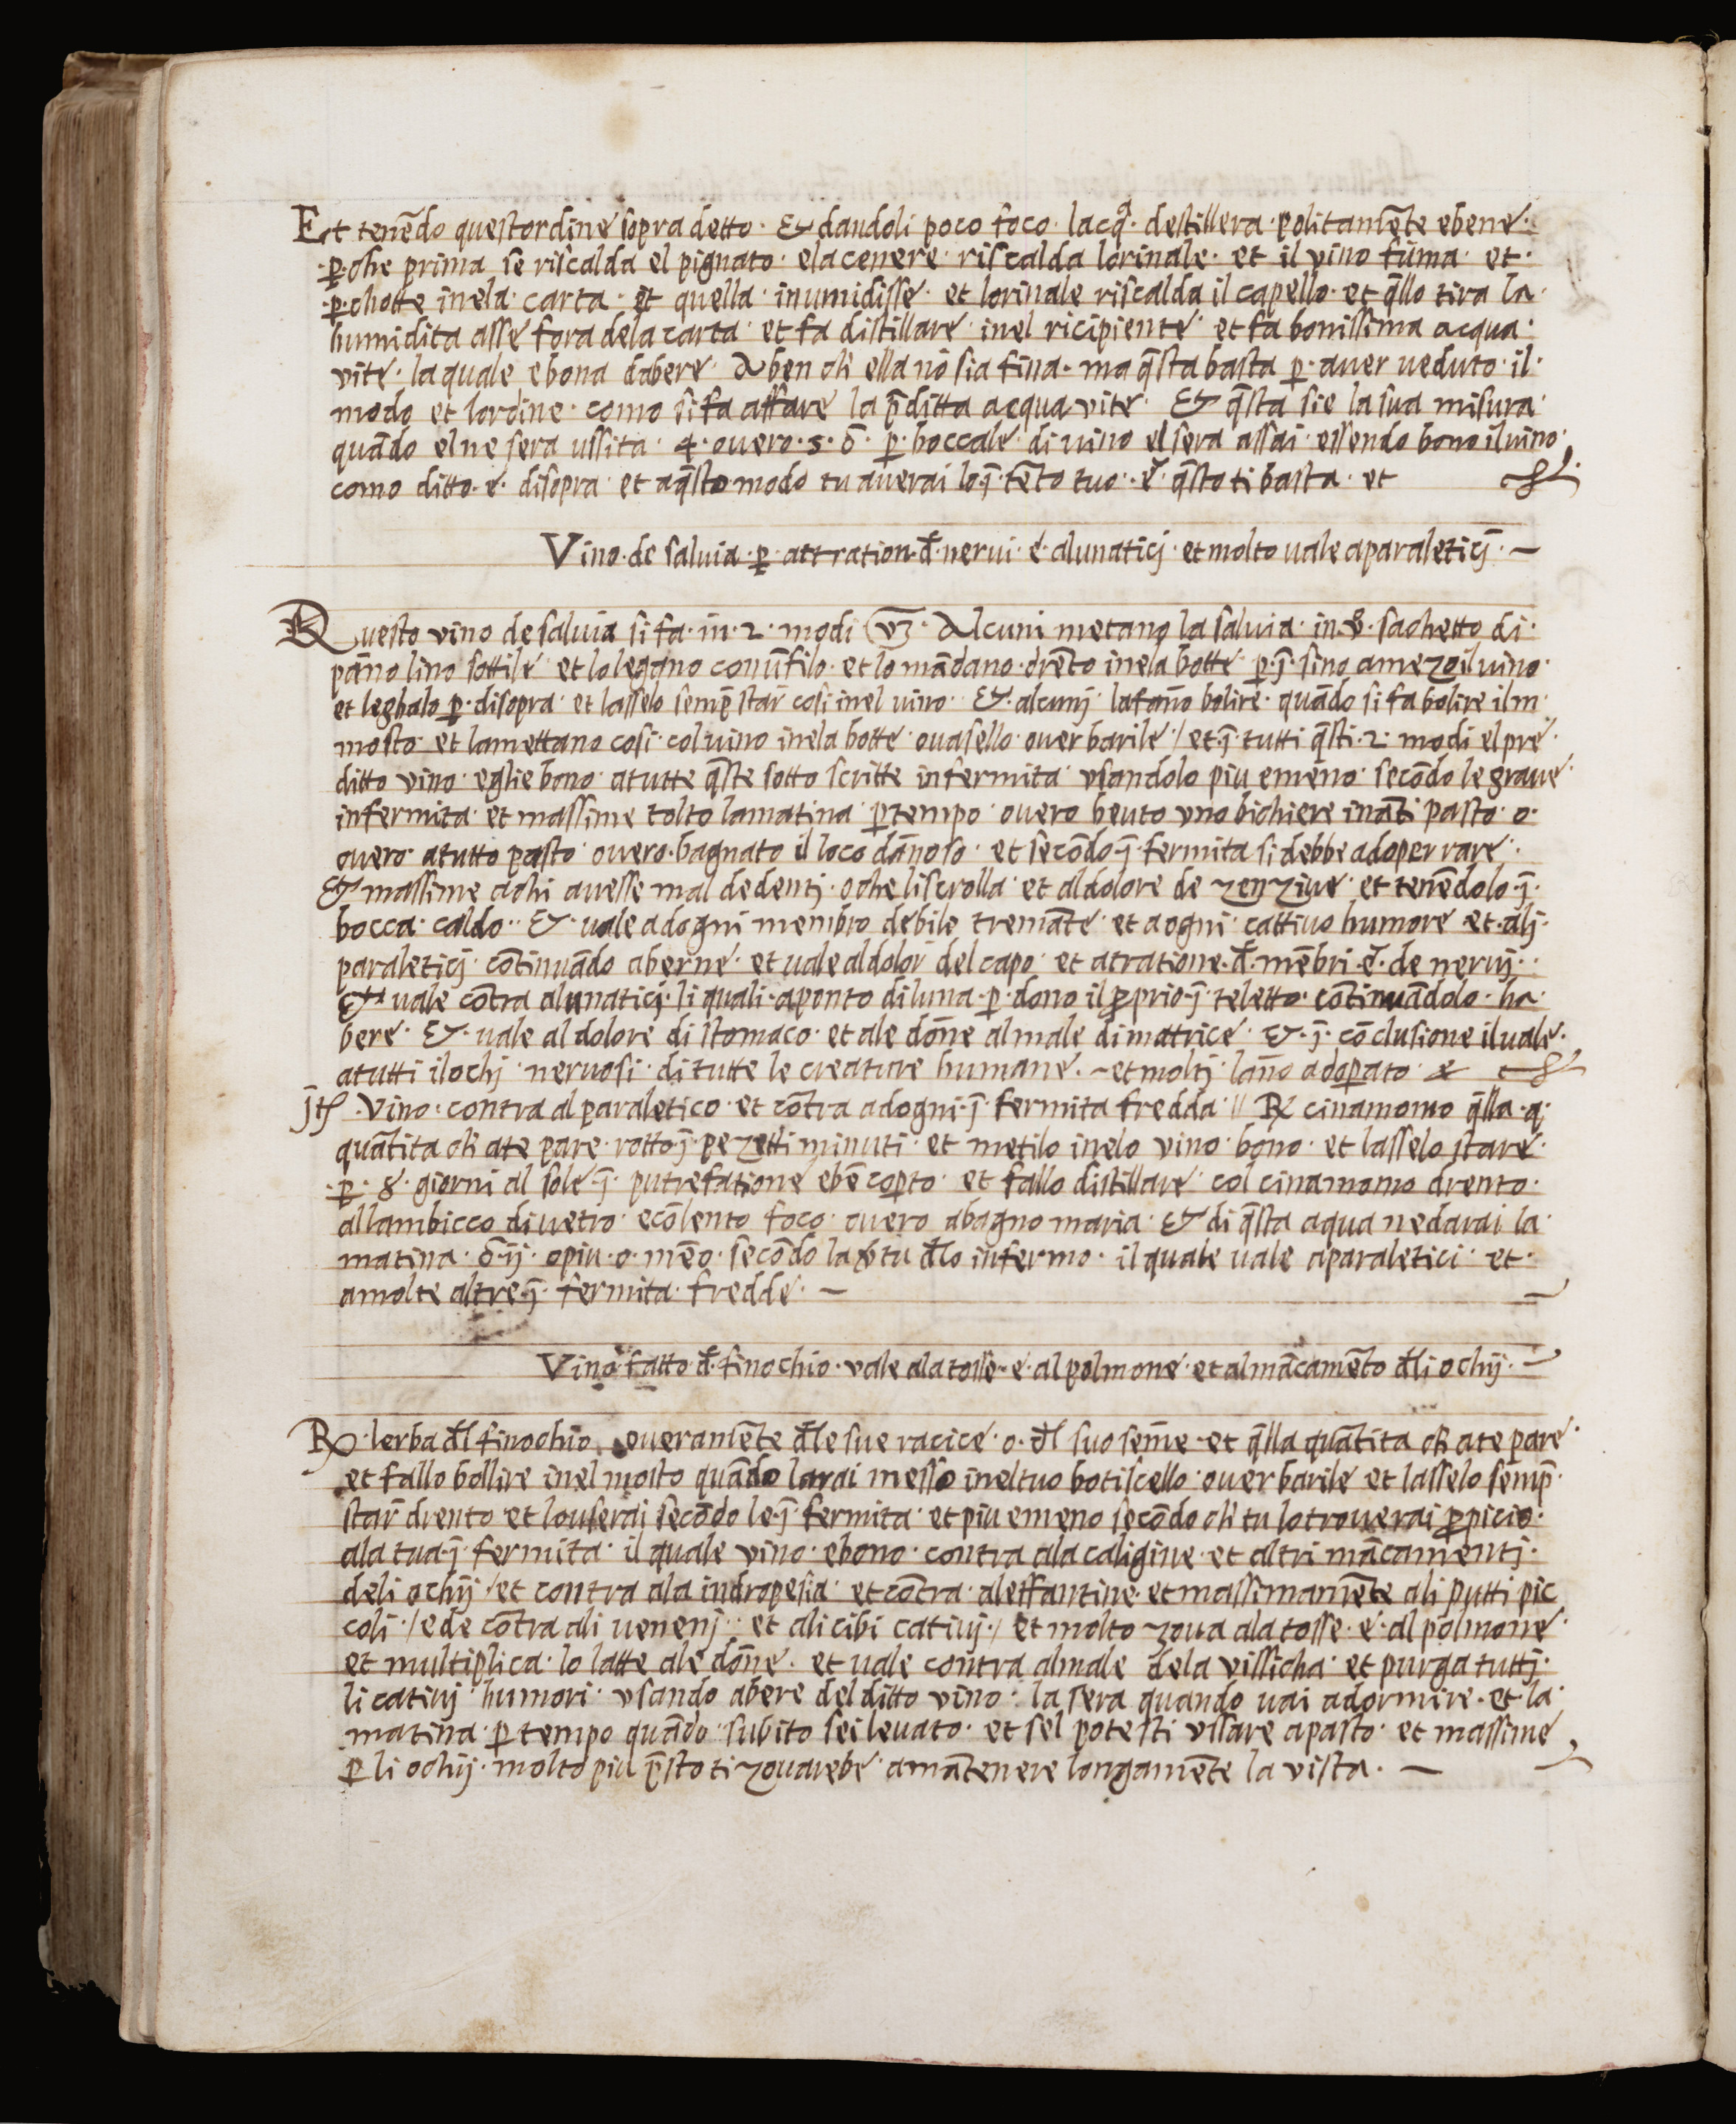 Et tenēdo questordine sopra detto · & dandoli poco foco · lacq̃ª · destillera · politamēte ebene ·
·ꝑ·che prima se riscalda el pignato · ela cenere · riscalda lorinale · et il vino fuma · et ·
·ꝑ·chotte inela · carta · et quella · inumidisse · et lorinale riscalda il capello · et q̄llo tira la ·
humidita asse fora dela carta · et fa distillare · inel ricipiente · et fa bonissima acqua ·
vite · la quale e bona dabere · & ben ch̄ ella nō sia fina · ma q̄sta basta ꝑ · aver veduto · il ·
modo et lordine · como si fa affare la p̄ditta acqua vite · & q̄sta sie la sua misura ·
quādo el ne sera ussita · 4 · overo · 5 · ō · ꝑ · boccale · di vino el sera assai · essendo bono il vino ·
como ditto · e · disopra · et a q̄sto modo tu averai lo·j̄·tēto tuo · e · q̄sto ti basta · et
Vino · de salvia · ꝑ · attration · đ · nervi · e · alunaticj · et molto vale aparaleticj̄ · ~
Questo vino de salvia si fa · in · 2 · modi (vʒ · Alcuni metano la salvia · in · v̄ · sachetto di ·
pāno lino sottile · et lo legano con ū filo · et lo mādano · drēto inela botte · ꝑ·j̄· sino amezo il vino ·
et leghalo ꝑ · disopra · et lasselo semp̄ star cosi inel vino · & · alcunj · la fāno bolire · quādo si fa bolire il m
mosto · et la mettano cosi · col vino inela botte · o vasello · over barile / et · j̄ · tutti q̄sti · 2 · modi el pre ·
ditto vino · eglie bono · a tutte q̄ste sotto scritte infermita · usandolo piu emeno · secōdo le grave ·
infermita · et massime tolto la matina · ꝑ tempo · overo beuto uno bichiere ināti pasto · o ·
overo · a tutto pasto · overo · bagnato il loco dānoso · et secōdo · j̄ · fermita si debbe adoperrare ·
& massime achi avesse mal de dentj · oche li scrolla · et al dolore de zenzive · et tenēdolo · j̄ ·
bocca · caldo · & · vale ad ogni membro debile tremāte · et a ogni · cattivo humore · et · alj ·
paraleticj · cōtinuādo a berne · et vale al dolor del capo · et atratione · đ · mēbri · e · de nervj ·
& vale cōtra alunaticj · li quali · aponto di luna · ꝑ · dono il ꝓprio · j̄ · teletto · cōtinuādolo · ha ·
bere · & · vale al dolore di stomaco · et ale dōne al male di matrice · & · j̄ · cōclusione il vale ·
a tutti i lochj · nervosi · di tutte le creature humane · ~ et moltj · lāno adoꝑato · &
jtꝭ · Vino · contra al paraletico · et cōtra ad ogni · j̄ · fermita fredda · // ℞ cinamomo q̄lla · q ·
quātita ch̄ ate pare · rotto · j̄ · pezetti minuti · et metilo inelo vino · bono · et lasselo stare ·
·ꝑ · 8 · giorni al sole · j̄ · putrefatione ebē coꝑto · et fallo distillare · col cinamomo drento ·
allambicco di vetro · ecō lento foco · overo abagno maria · & di q̄sta aqua ne darai la ·
matina · ō · ij · opiu · o · mēo · secōdo la v̄tu đlo infermo · il quale vale aparaletici · et ·
a molte altre · j̄ · fermita · fredde · ~
Vino · fatto · đ · finochio · vale ala tosse · e · al polmone · et al mācamēto đli ochij · ~
℞ · lerba đl finochio · overamēte đle sue racice · o · đl suo sem̄e · et q̄lla quātita ch̄ ate pare ·
et fallo bollire inel mosto quādo larai messo inel tuo botiscello · over barile et lasselo semp̄ ·
star drento et lo userai secōdo le · j̄ · fermita · et piu emeno secōdo ch̄ tu lo troverai ꝓpicio ·
ala tua · j̄ · fermita · il quale vino · e bono · contra ala caligine · et altri mācamentj ·
deli ochij / et contra ala indropesia · et cōtra · aleffantine · et massimamēte ali putti pic
coli · / ede cōtra ali venenj · et ali cibi cativj · / et molto zova ala tosse · e · al polmone ·
et multiplica · lo latte ale dōne · et vale contra al male dela vissicha · et purga tuttj ·
li cativj · humori · usando abere del ditto vino · la sera quando vai adormire · et la ·
matina · ꝑ tempo quādo · subito sei levato · et sel potesti ussare apasto · et massime
ꝑ li ochij · molto piu p̄sto ti zovarebe · amātenere longamēte la vista · ~